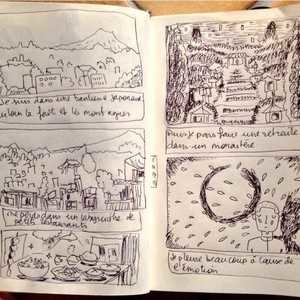 Je suis dans une banlieue Japonaise
la forêt et les monts
Je perds dans un labyrinthe de
petits restaurants
Puis Je pars faire une retraite
dans un monastère
Je pleure beaucoup à cause de
l'émotion